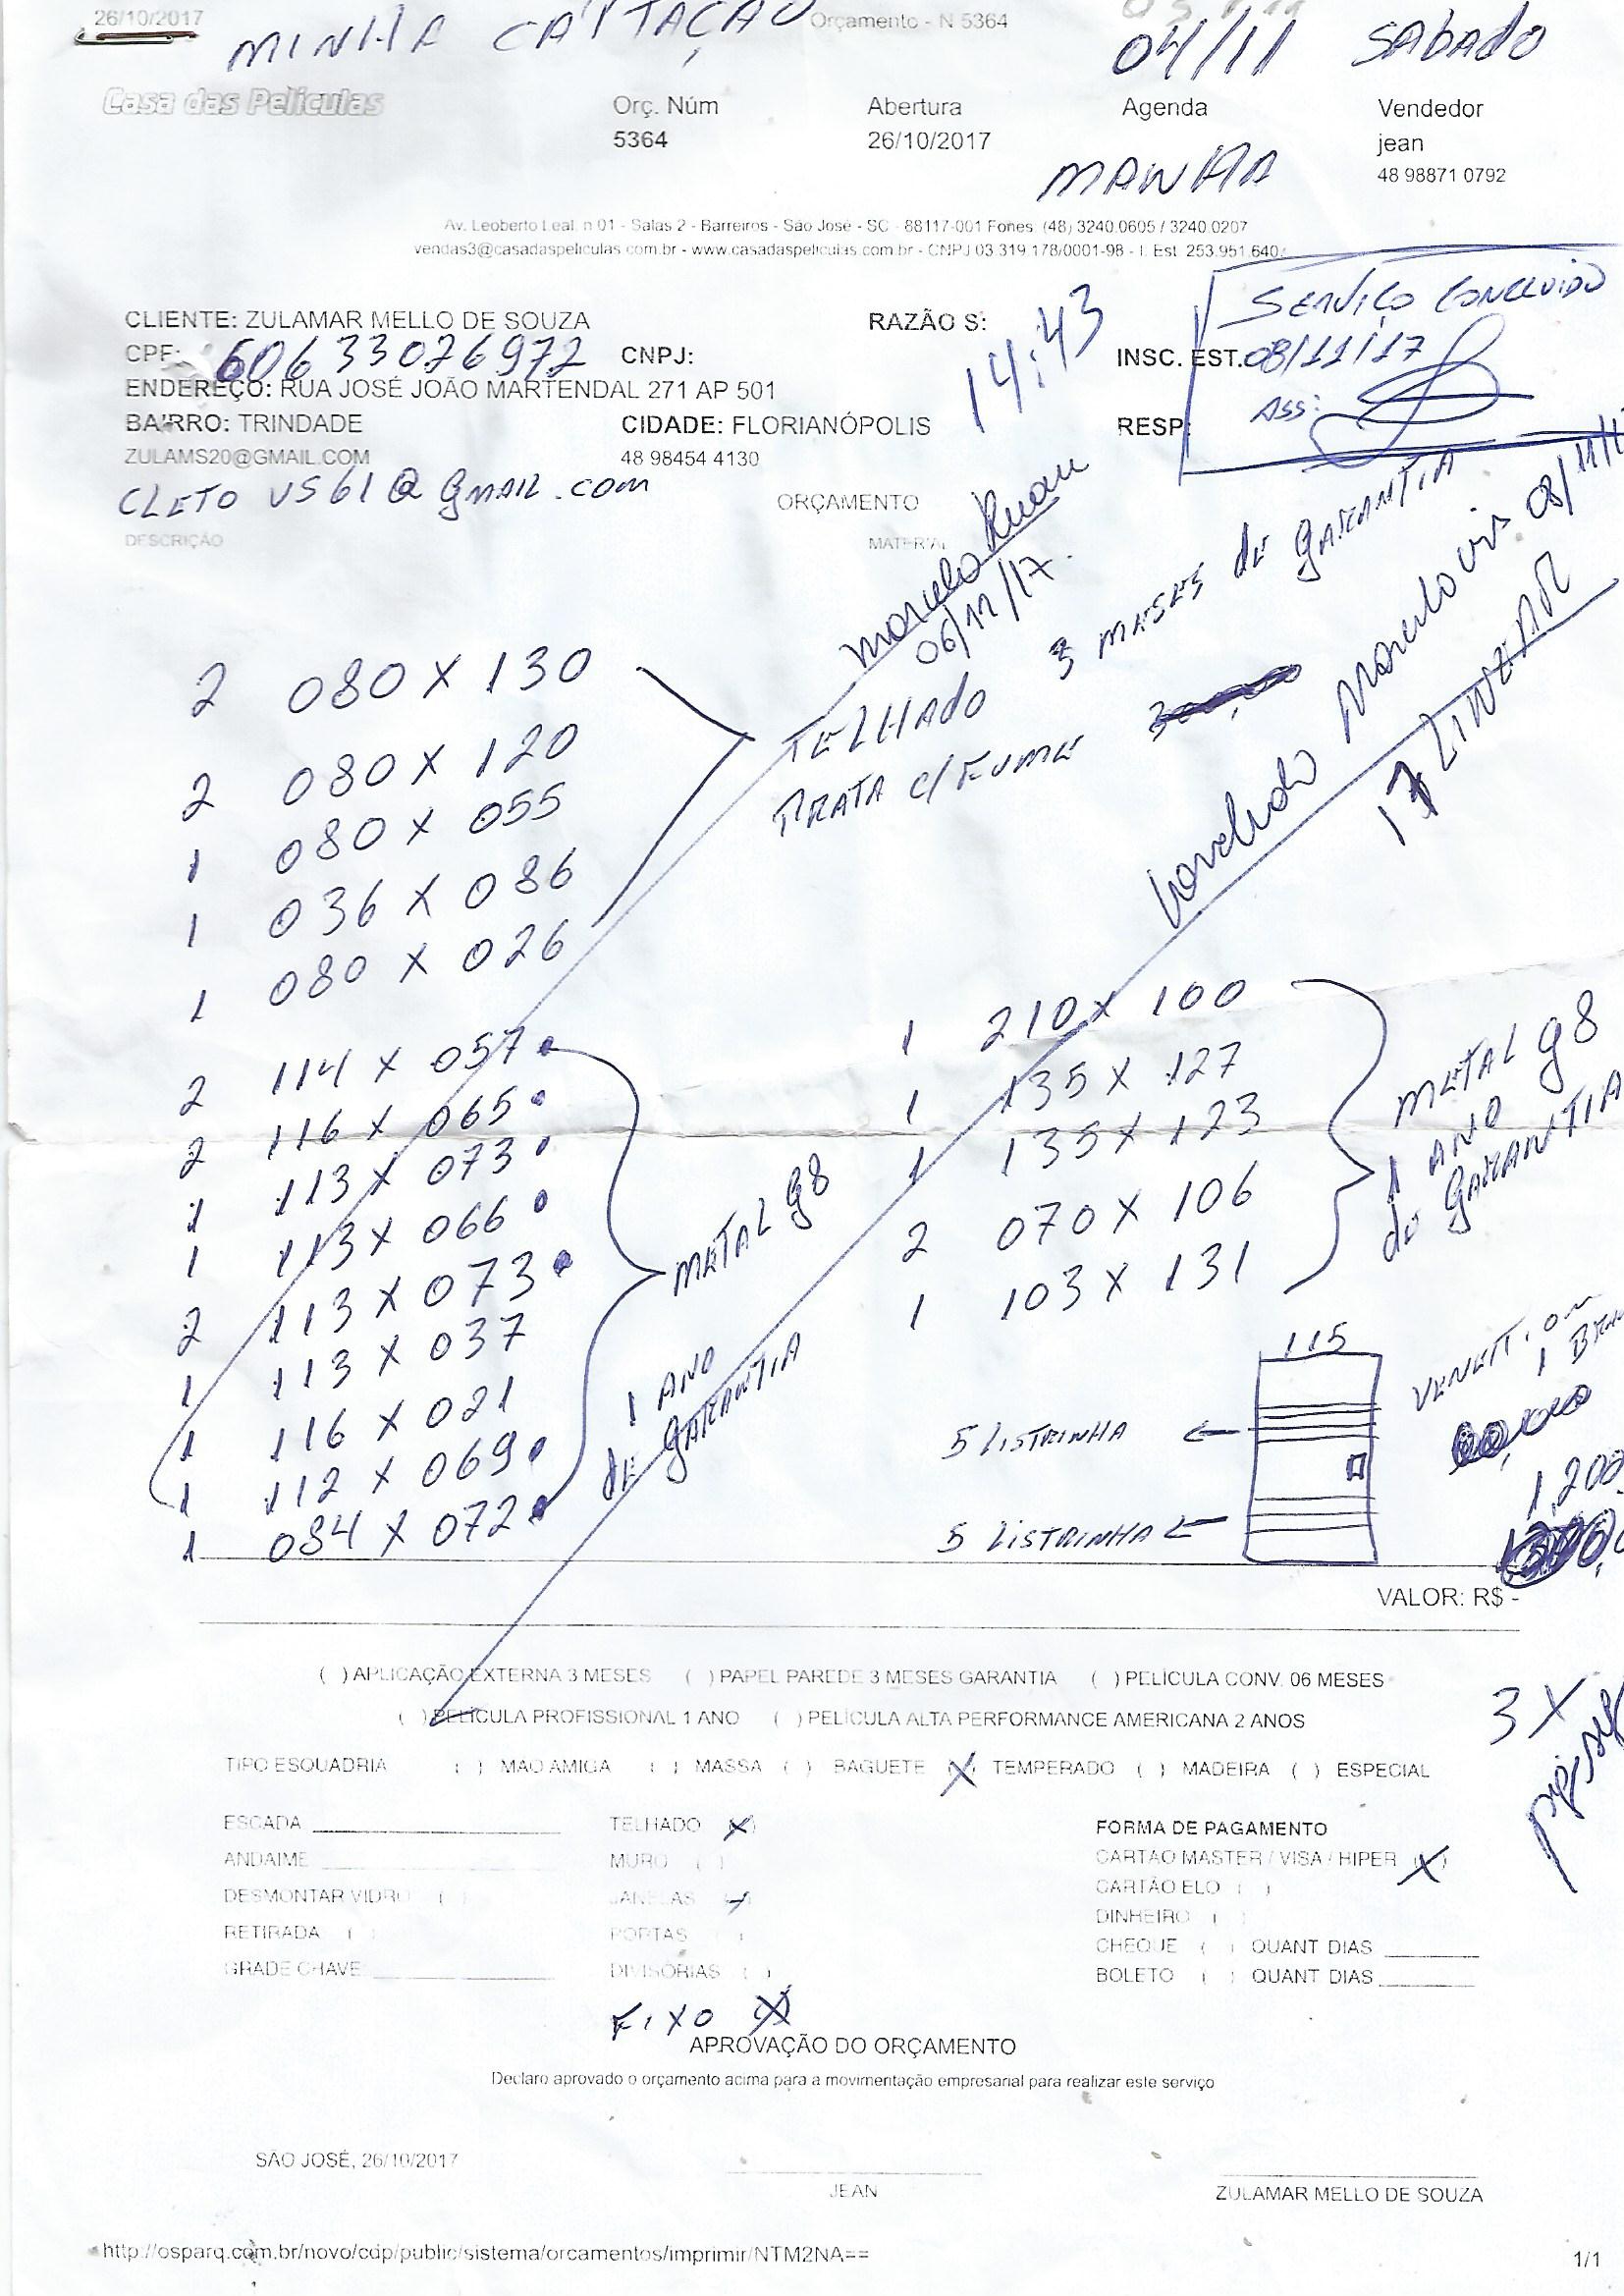 26/10/2017
Orçamento - N 5364
MINHA CAPTAÇÃO
04/11 SABADO
Casa das Películas
Orç. Núm
5364
Abertura
26/10/2017
Agenda
MANHA
Vendedor
jean
48 98871 0792
Av. Leoberto Leal, n 01 - Salas 2 - Barreiros - São José - SC - 88117-001 Fones: (48) 3240.0605 / 3240.0207
vendas3@casadaspeliculas.com.br - www.casadaspeliculas.com.br - CNPJ 03.319.178/0001-98 - I. Est. 253.951.640
SERVIÇO CONCLUIDO
08/11/17
ASS:
CLIENTE: ZULAMAR MELLO DE SOUZA
RAZÃO S:
14:43
CPF: 60633026972
CNPJ:
INSC. EST.
ENDEREÇO: RUA JOSÉ JOÃO MARTENDAL 271 AP 501
BAIRRO: TRINDADE
CIDADE: FLORIANÓPOLIS
RESP:
ZULAMS20@GMAIL.COM
48 98454 4130
CLETO VS61@gmail.com
ORÇAMENTO
DESCRIÇÃO
MATERIAL
06/11/17.
TELHADO 3 MESES de GARANTIA
PRATA c/ FUME
17 LINEAR
2 080 X 130
2 080 X 120
1 080 X 055
1 036 X 086
1 080 X 026
2 114 X 057
2 116 X 065
1 113 X 073
1 113 X 066
2 113 X 073
1 113 X 037
1 116 X 021
1 112 X 069
1 084 X 072
METAL g8
1 ANO
de GARANTIA
1 210 X 100
1 135 X 127
1 135 X 123
2 070 X 106
1 103 X 131
METAL g8
1 ANO
de GARANTIA
115
5 LISTRINHA
5 LISTRINHA
1,200
VALOR: R$ -
( ) APLICAÇÃO EXTERNA 3 MESES ( ) PAPEL PAREDE 3 MESES GARANTIA ( ) PELÍCULA CONV. 06 MESES
( ) PELÍCULA PROFISSIONAL 1 ANO ( ) PELÍCULA ALTA PERFORMANCE AMERICANA 2 ANOS
3X
TIPO ESQUADRIA ( ) MAO AMIGA ( ) MASSA ( ) BAGUETE (X) TEMPERADO ( ) MADEIRA ( ) ESPECIAL
ESCADA
TELHADO (X)
FORMA DE PAGAMENTO
ANDAIME
MURO ( )
CARTÃO MASTER / VISA / HIPER (X)
DESMONTAR VIDRO ( )
JANELAS
CARTÃO ELO ( )
RETIRADA ( )
PORTAS ( )
DINHEIRO ( )
GRADE CHAVE
DIVISÓRIAS ( )
CHEQUE ( ) QUANT DIAS
BOLETO ( ) QUANT DIAS
FIXO (X)
APROVAÇÃO DO ORÇAMENTO
Declaro aprovado o orçamento acima para a movimentação empresarial para realizar este serviço
SÃO JOSÉ, 26/10/2017
JEAN
ZULAMAR MELLO DE SOUZA
http://osparq.com.br/novo/cdp/public/sistema/orcamentos/imprimir/NTM2NA==
1/1